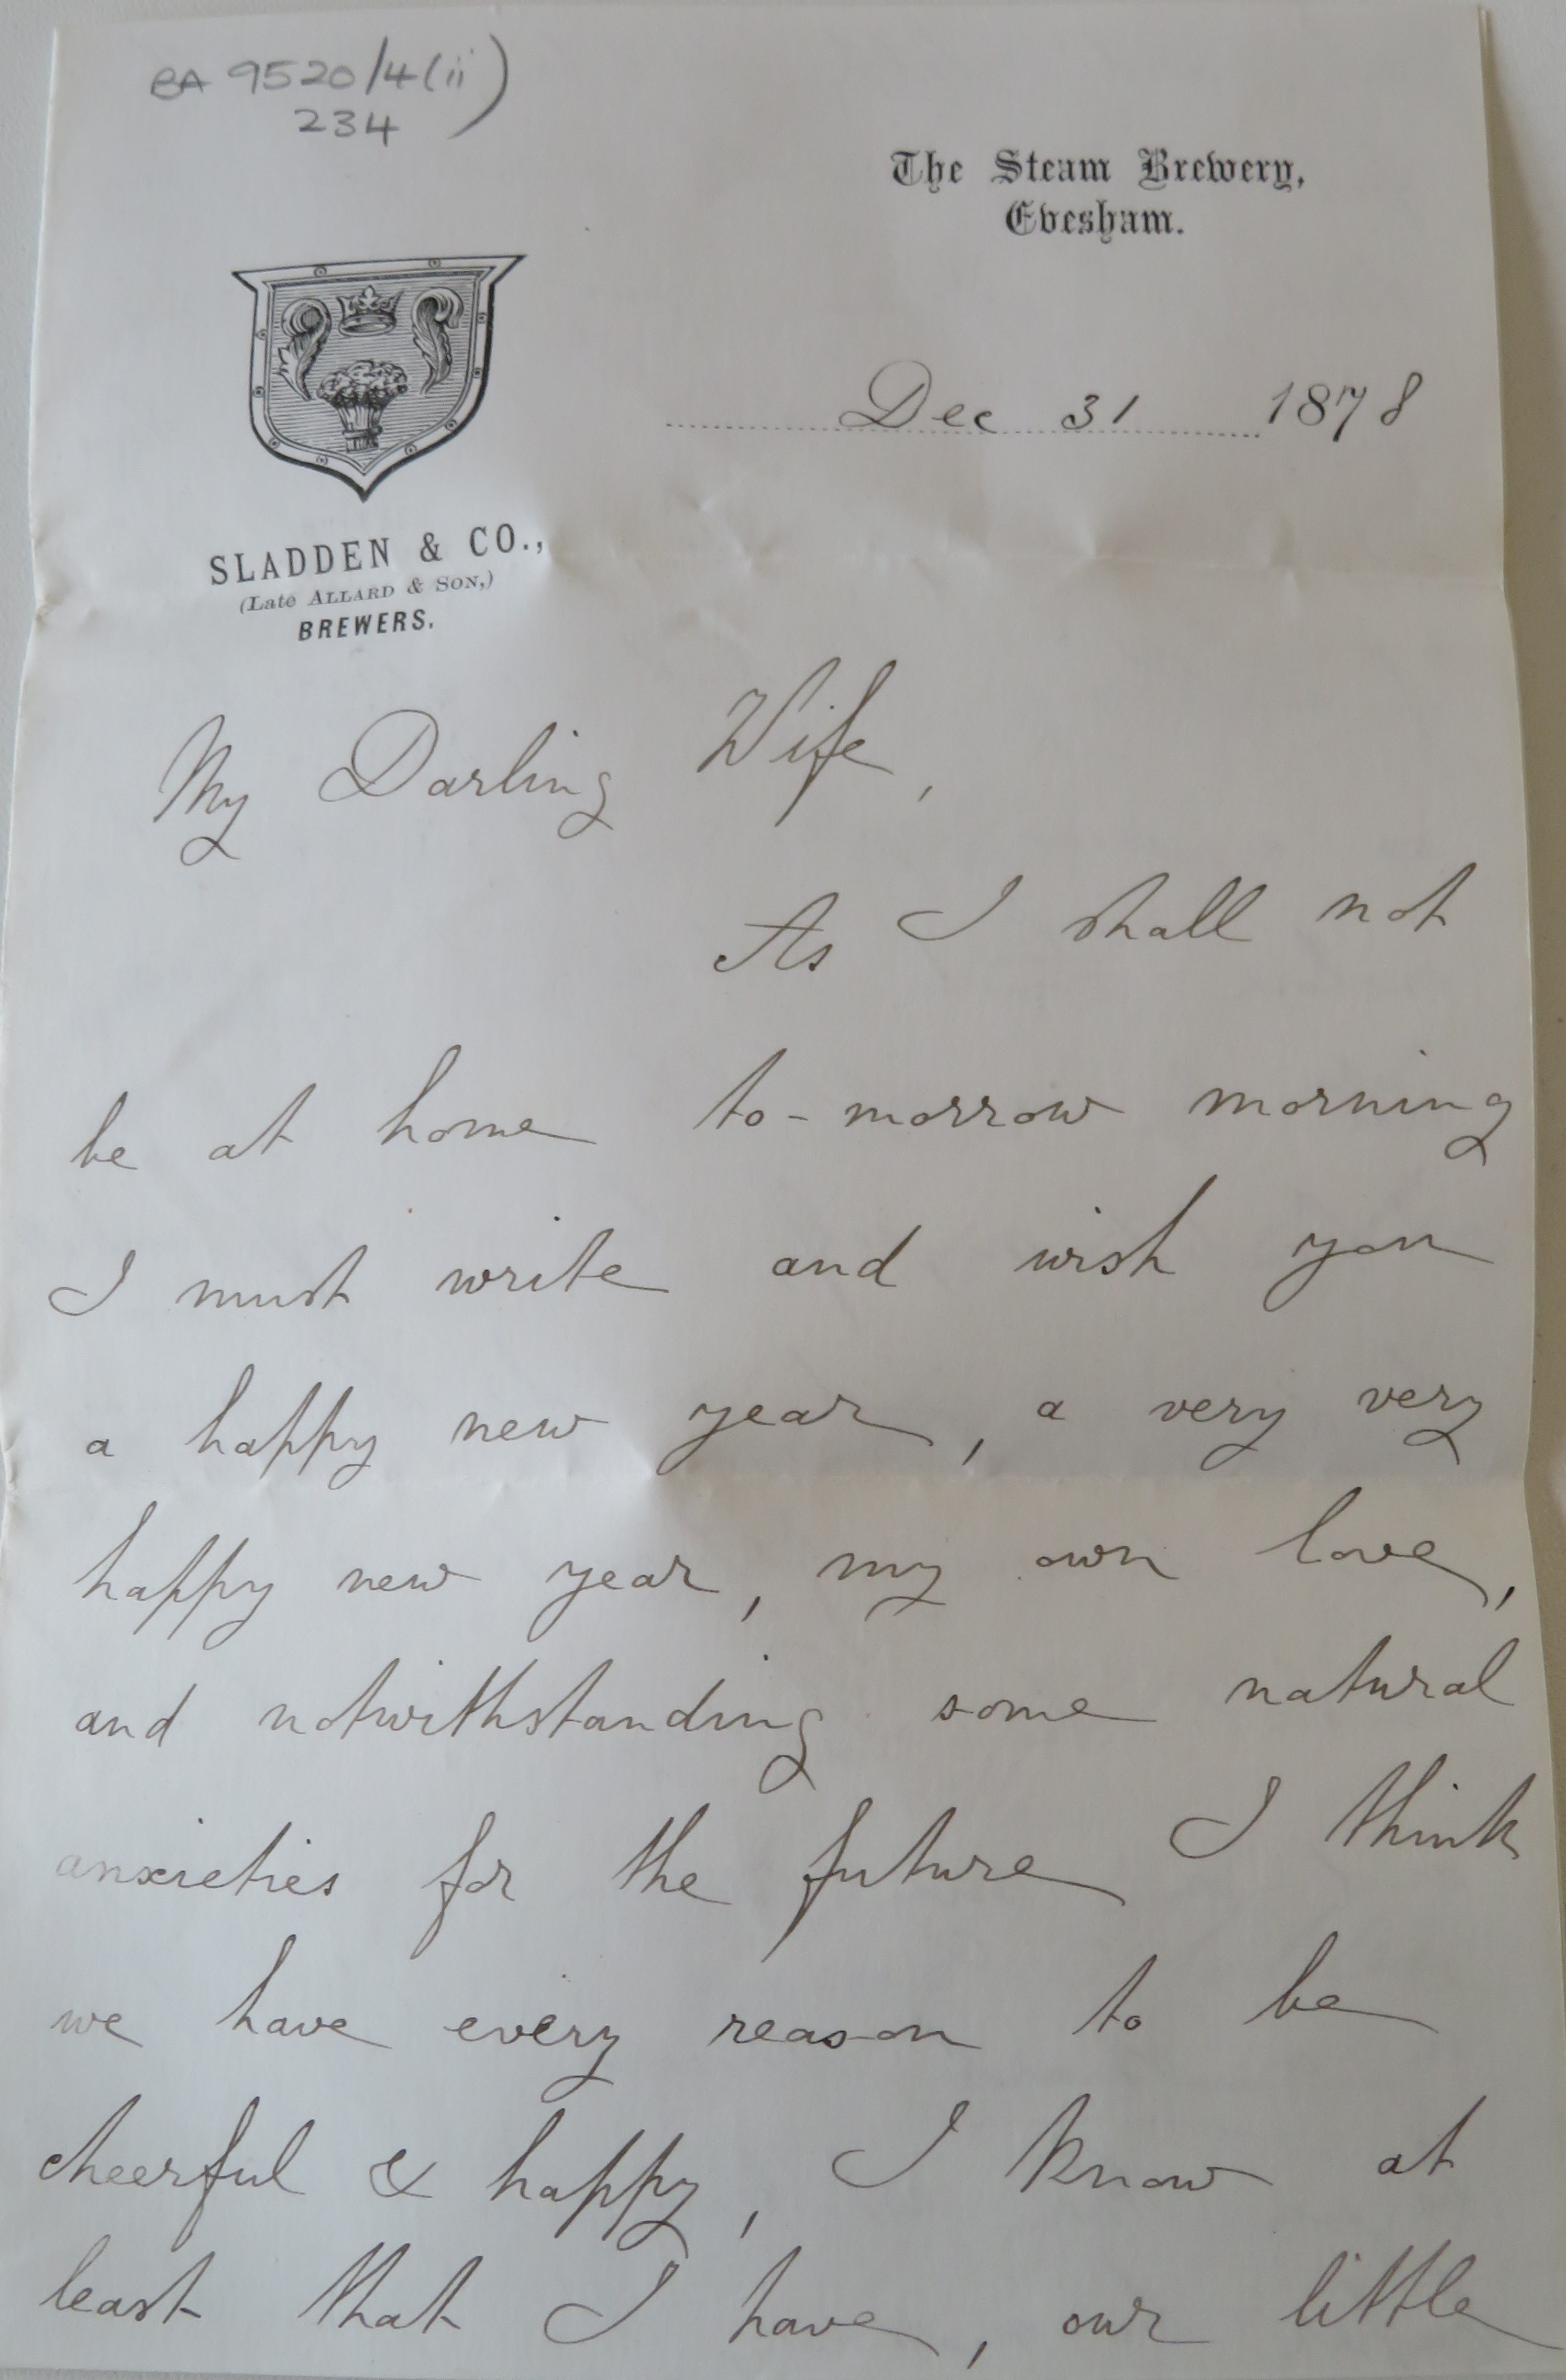 BA 9520/4(ii)
234
The Steam Brewery,
Evesham.
Dec 31 1878
SLADDEN & CO.,
(Late ALLARD & SON,)
BREWERS.
My Darling Wife,
As I shall not
be at home to-morrow morning
I must write and wish you
a happy new year, a very very
happy new year, my own love,
and notwithstanding some natural
anxieties for the future I think
we have every reason to be
cheerful & happy, I know at
least that I have, our little